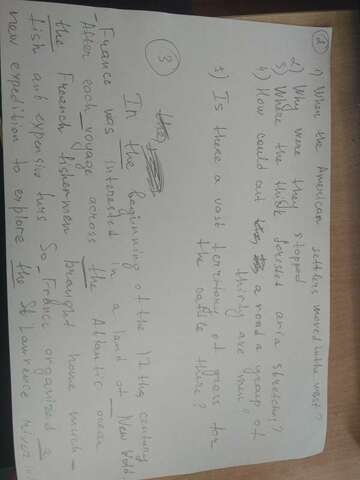 2
1) When the American settlers moved to the west?
2) Why were they stopped
3) Where the thick forest area stretches?
4) How could cut a road a group of
thirty axe men?
5) Is there a vost territory of grass for
the cattle there?
3
the
In the beginning of the 17the century
-France was interested in a land of _ New World
-After each voyage across the Atlantic ocean
the French fishermen brought home much-
fish and expensive furs So_ France organized a
new expedition to explore the St Lawrence river